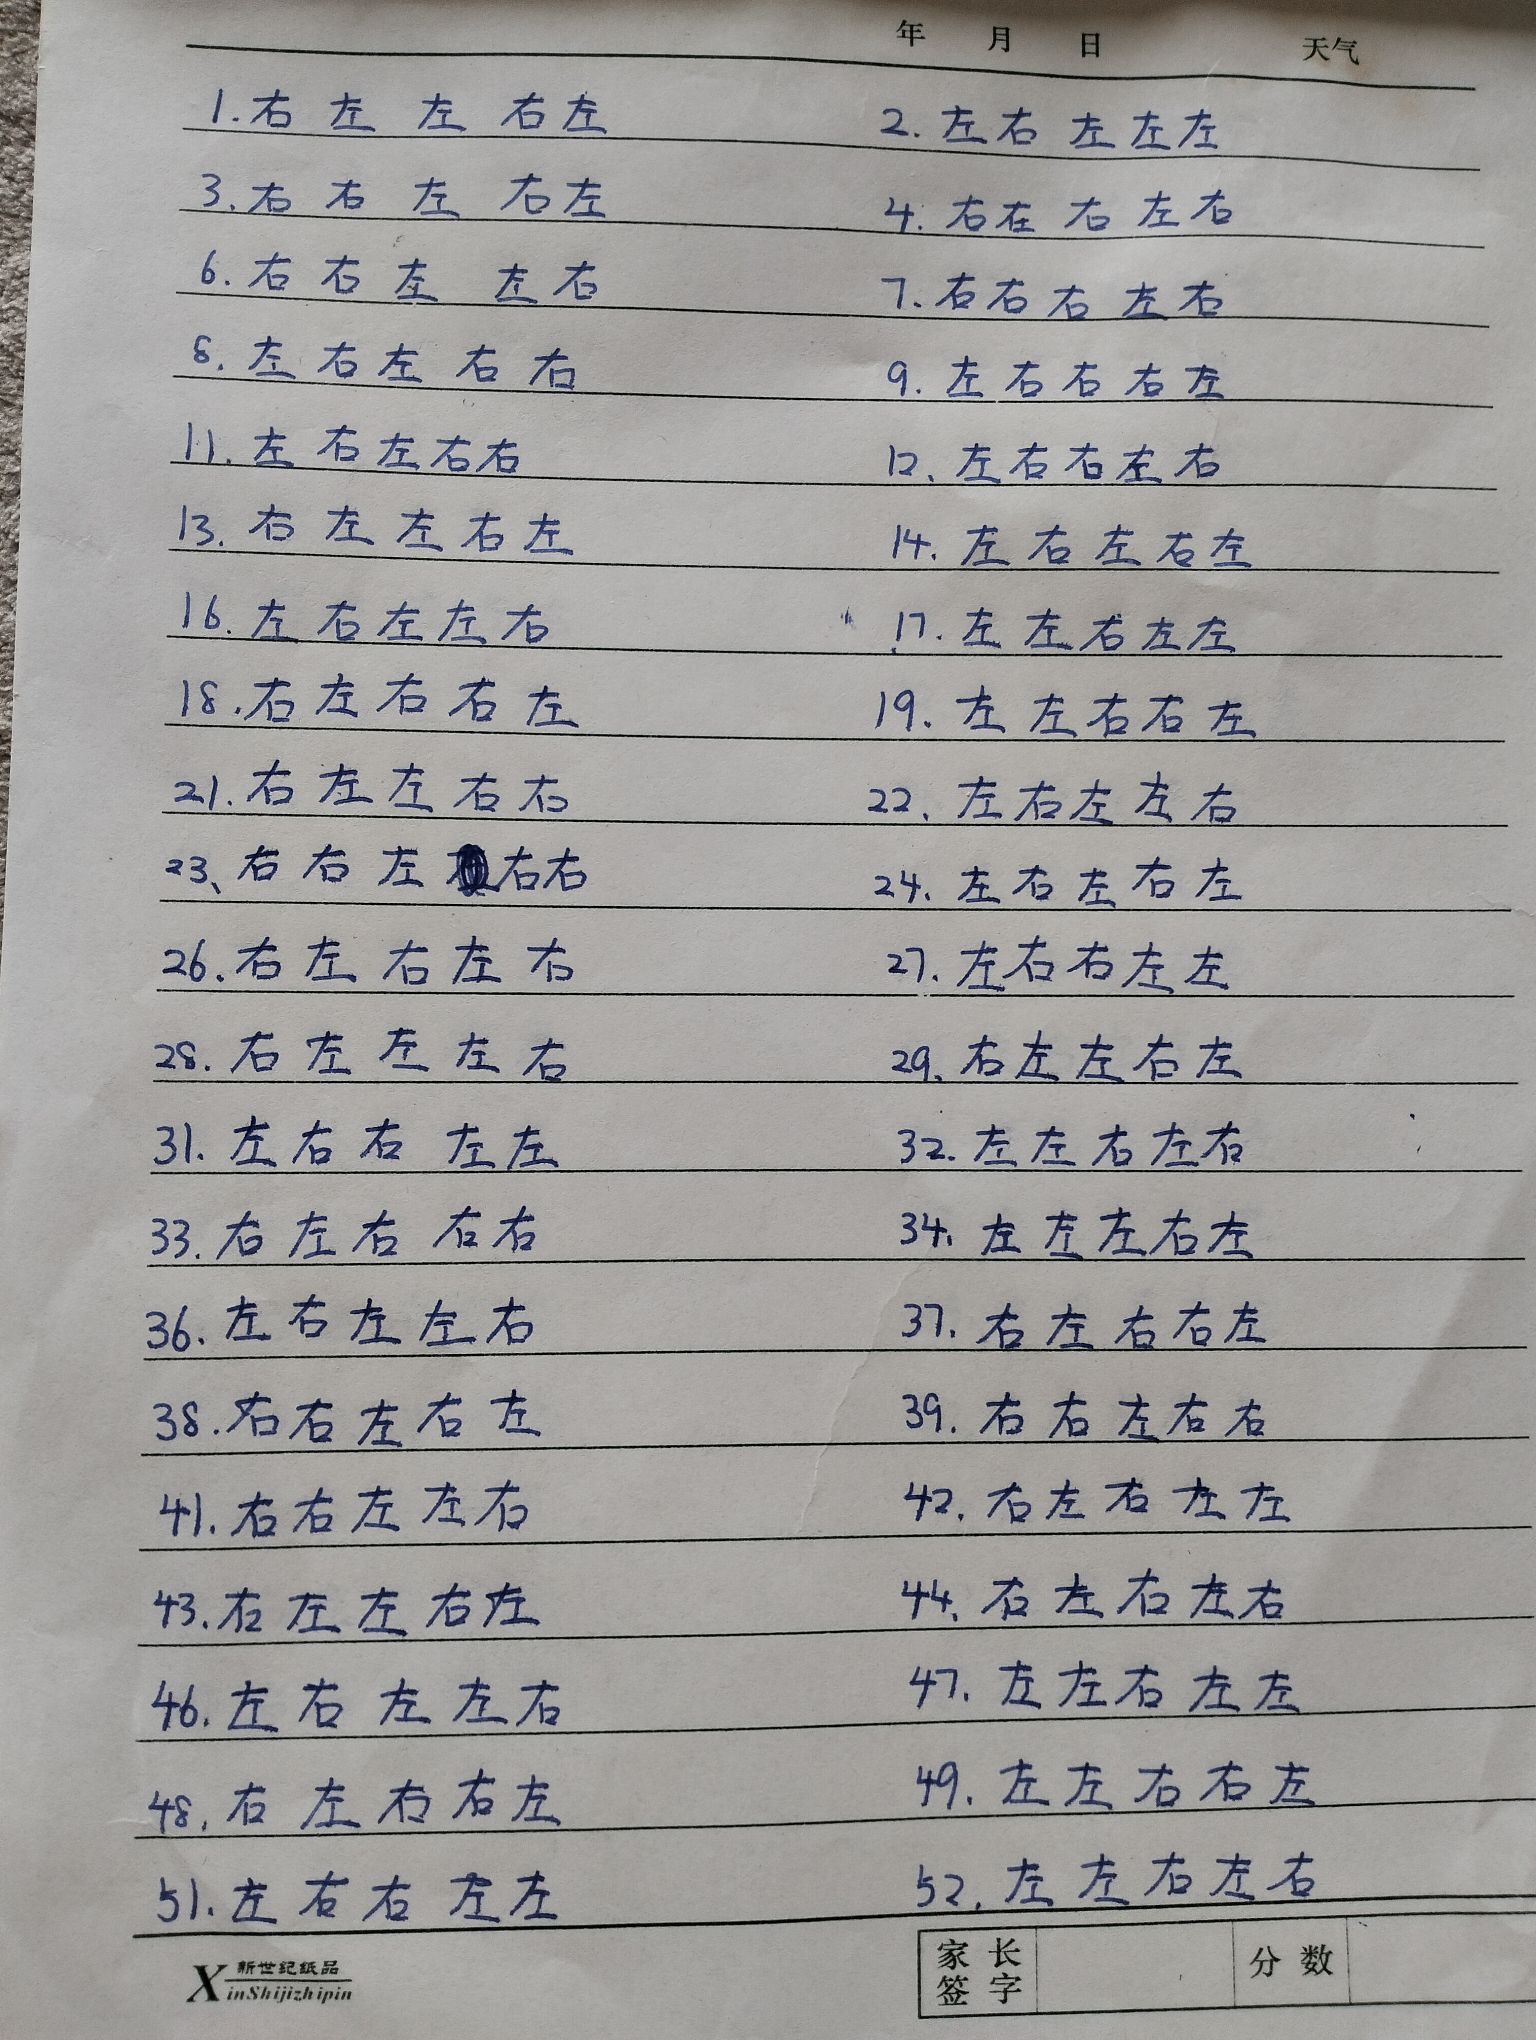 年 月 日 天气
1. 右 左 左 右 左 2. 左 右 左 左 左
3. 右 右 左 右 左 4. 右 在 右 左 右
6. 右 右 左 左 右 7. 右 右 右 左 右
8. 左 右 左 右 右 9. 左 右 右 右 左
11. 左 右 左 右 右 12、左 右 右 左 右
13. 右 左 左 右 左 14. 左 右 左 右 左
16. 左 右 左 左 右 17. 左 左 右 左 左
18. 右 左 右 右 左 19. 左 左 右 右 左
21. 右 左 左 右 右 22、左 右 左 左 右
23、右 右 左 右 右 24. 左 右 左 右 左
26. 右 左 右 左 右 27. 左 右 右 左 左
28. 右 左 左 左 右 29、右 左 左 右 左
31. 左 右 右 左 左 32. 左 左 右 左 右
33. 右 左 右 右 右 34. 左 左 左 右 左
36. 左 右 左 左 右 37. 右 左 右 右 左
38. 右 右 左 右 左 39. 右 右 左 右 右
41. 右 右 左 左 右 42. 右 左 右 左 左
43. 右 左 左 右 左 44、右 左 右 左 右
46. 左 右 左 左 右 47. 左 左 右 左 左
48. 右 左 右 右 左 49. 左 左 右 右 左
51. 左 右 右 左 左 52. 左 左 右 左 右
新世纪纸品
XinShijizhipin
家长签字 分数